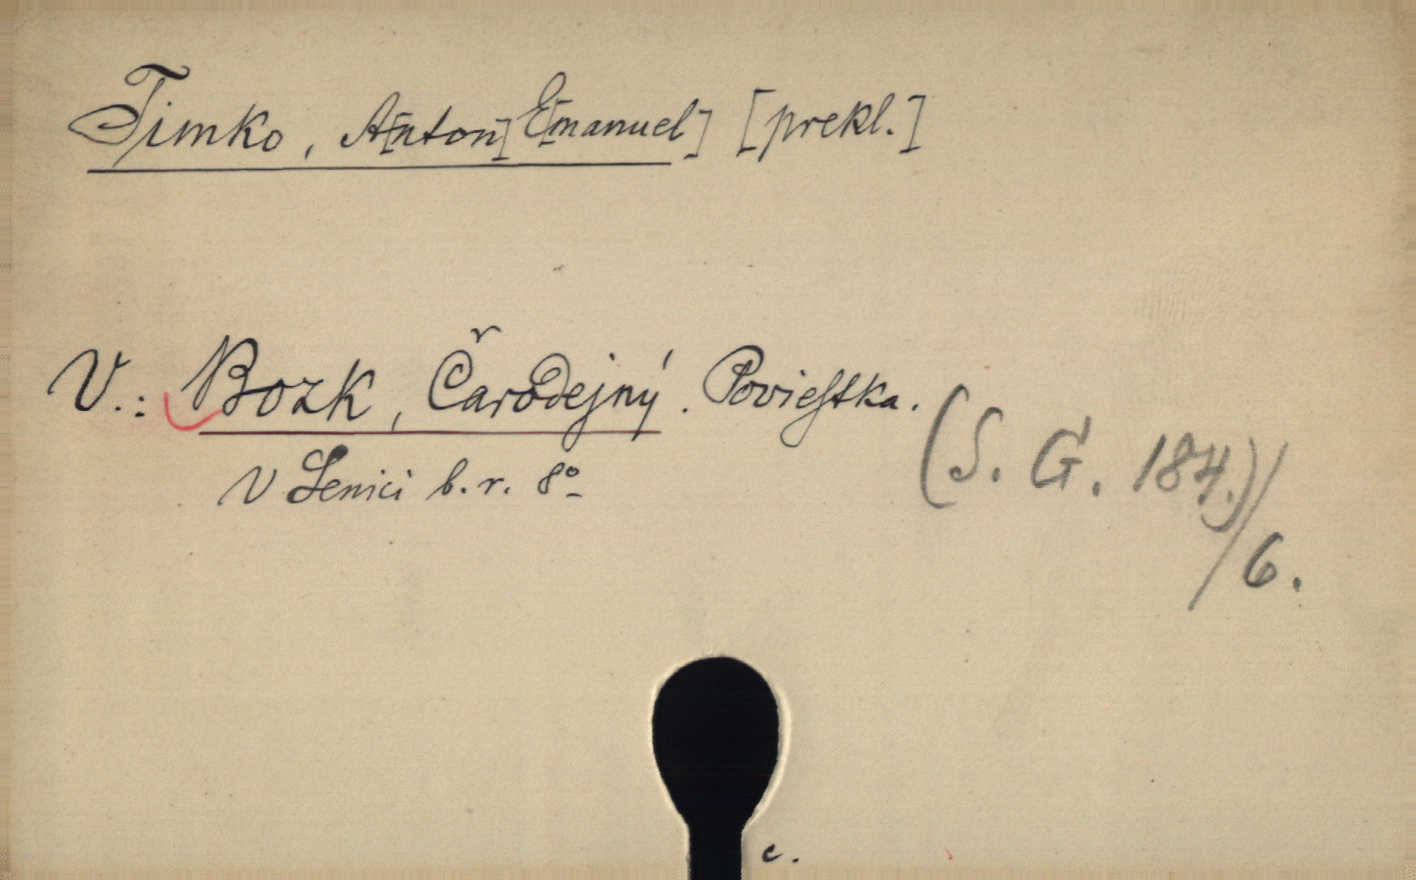 Timko, A[nton] E[manuel] [prekl.]
V.: Bozk, Čarodejný. Povieſtka.
V Senici b. r. 8°
(S. G. 184.)/6.
c.